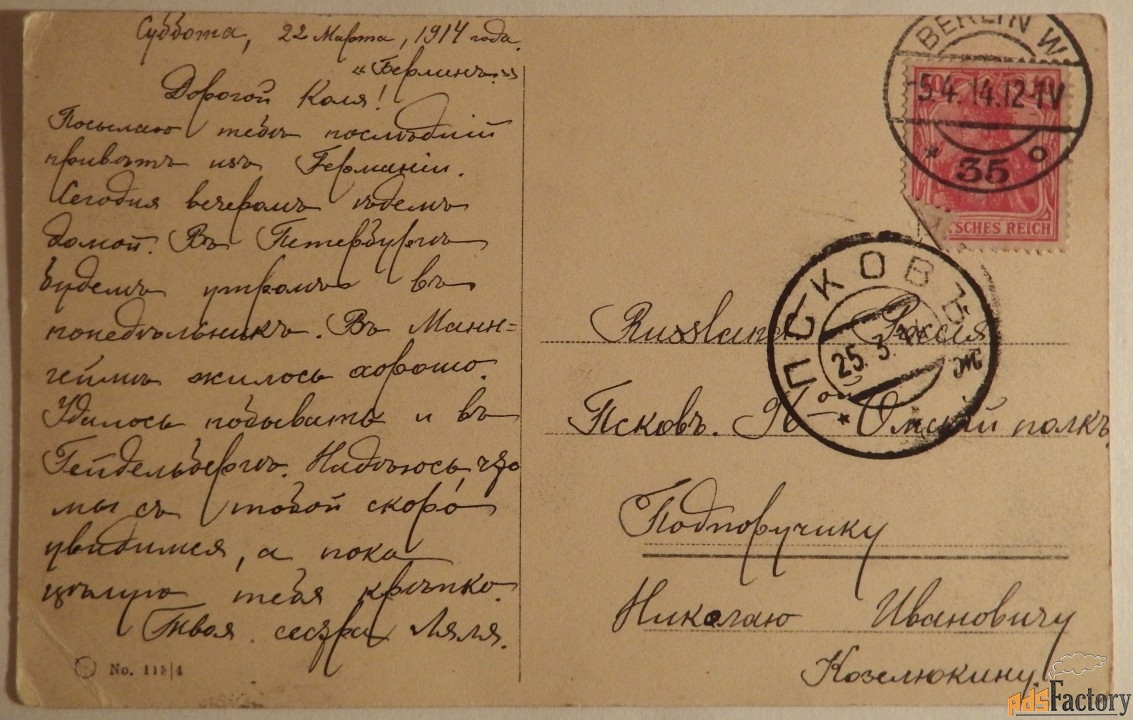 Суббота, 22 Марта, 1914 года.
"Берлинъ."
Дорогой Коля!
Посылаю тебѣ послѣдній
привѣтъ изъ Германіи.
Сегодня вечеромъ ѣдемъ
домой. Въ Петербургѣ
будемъ утромъ въ
понедѣльникъ. Въ Манн=
геймѣ жилось хорошо.
Удалось побывать и въ
Гейдельбергѣ. Надѣюсь, что
мы съ тобой скоро
увидимся, а пока
цѣлую тебя крѣпко.
Твоя сестра Ляля.
No. 115/4
BERLIN W
-5.4.14.12-1V
* 35 o
DEUTSCHES REICH
ПСКОВЪ
25.3.14
Russland Россія
Псковъ. 96ой Омскій полкъ
Подпоручику
Николаю Ивановичу
Козелюкину.
adsFactory